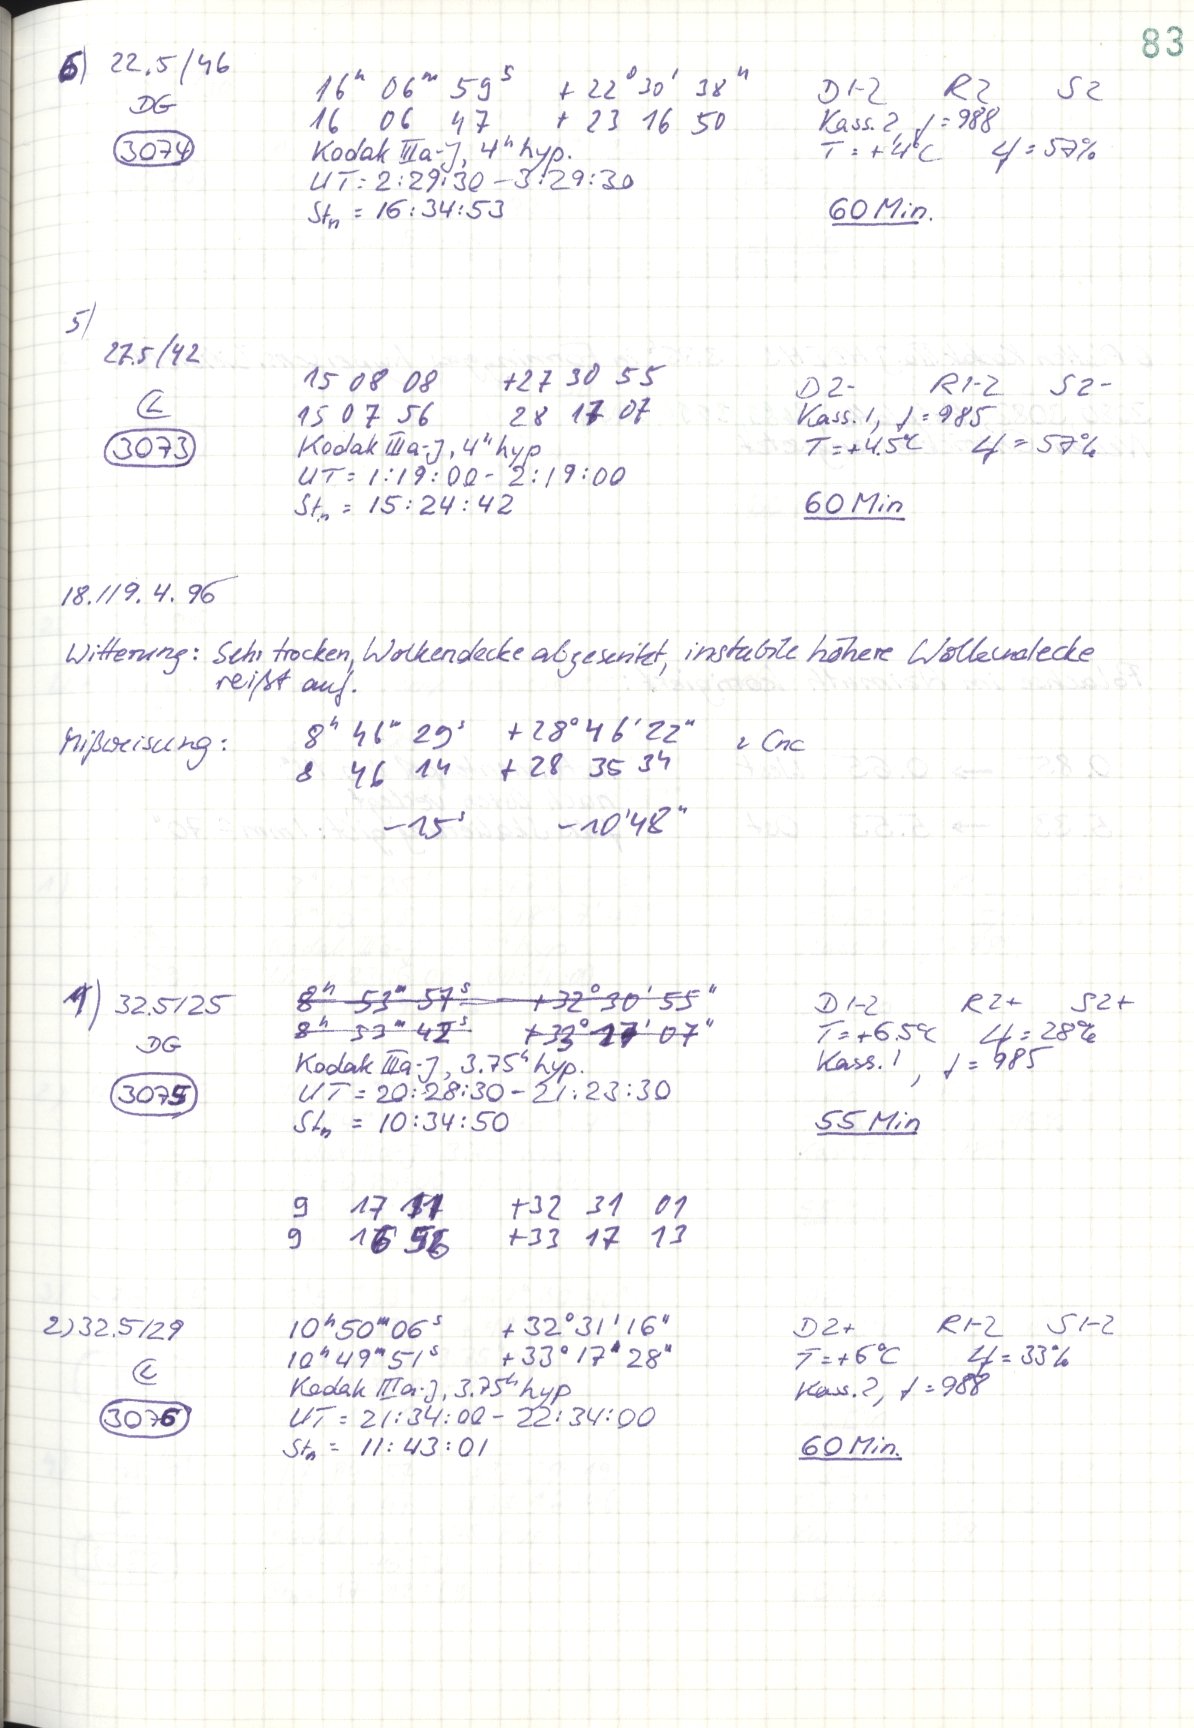 83
6) 22.5/46
16h 06m 59s +22° 30' 38" D1-2 R2 S2
DG
16 06 47 +23 16 50 Kass. 2, f = 988
3074
Kodak IIIa-J, 4h hyp. T = +4°C φ = 57%
UT = 2:29:30 - 3:29:30
Stn = 16:34:53 60 Min.
5)
27.5/42
15 08 08 +27 30 55 D2- R1-2 S2-
15 07 56 28 17 07 Kass. 1, f = 985
3073
Kodak IIIa-J, 4h hyp T = +4.5°C φ = 57%
UT = 1:19:00 - 2:19:00
Stn = 15:24:42 60 Min
18./19.4.96
Witterung: Sehr trocken, Wolkendecke abgesenkt, instabile höhere Wolkendecke
reißt auf.
Mißweisung: 8h 46m 29s +28° 46' 22" ι Cnc
8 46 14 +28 35 34
-15s -10'48"
1) 32.5/25 8h 53m 57s +32° 30' 55" D1-2 R2+ S2+
8h 53m 42s +33° 17' 07" T = +6.5°C φ = 28%
DG
Kodak IIIa-J, 3.75h hyp. Kass. 1, f = 985
3075
UT = 20:28:30 - 21:23:30
Stn = 10:34:50 55 Min
9 17 11 +32 31 01
9 16 56 +33 17 13
2) 32.5/29 10h 50m 06s +32° 31' 16" D2+ R1-2 S1-2
10h 49m 51s +33° 17' 28" T = +6°C φ = 33%
Kodak IIIa-J, 3.75h hyp Kass. 2, f = 988
3076
UT = 21:34:00 - 22:34:00
Stn = 11:43:01 60 Min.